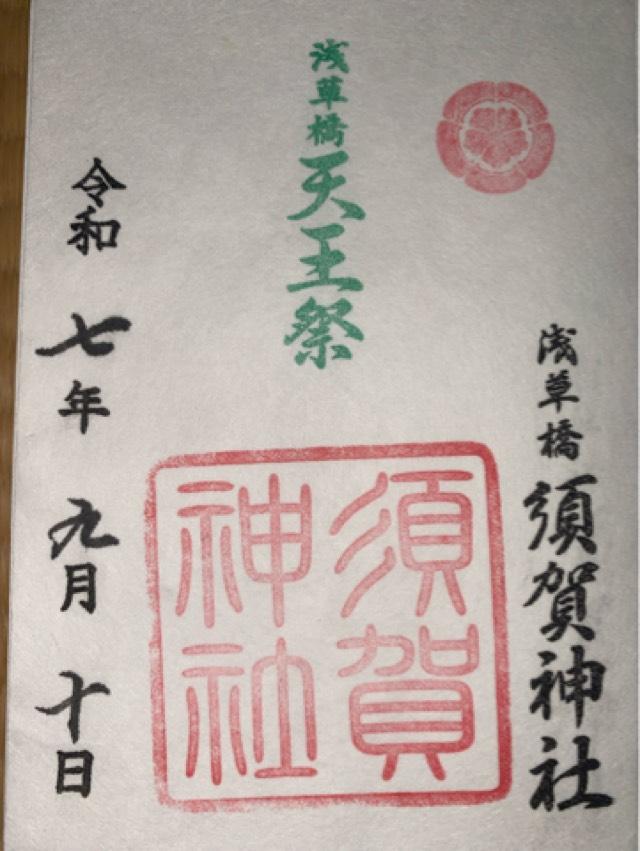 浅草橋須賀神社
浅草橋天王祭
須賀
神社
令和七年九月十日